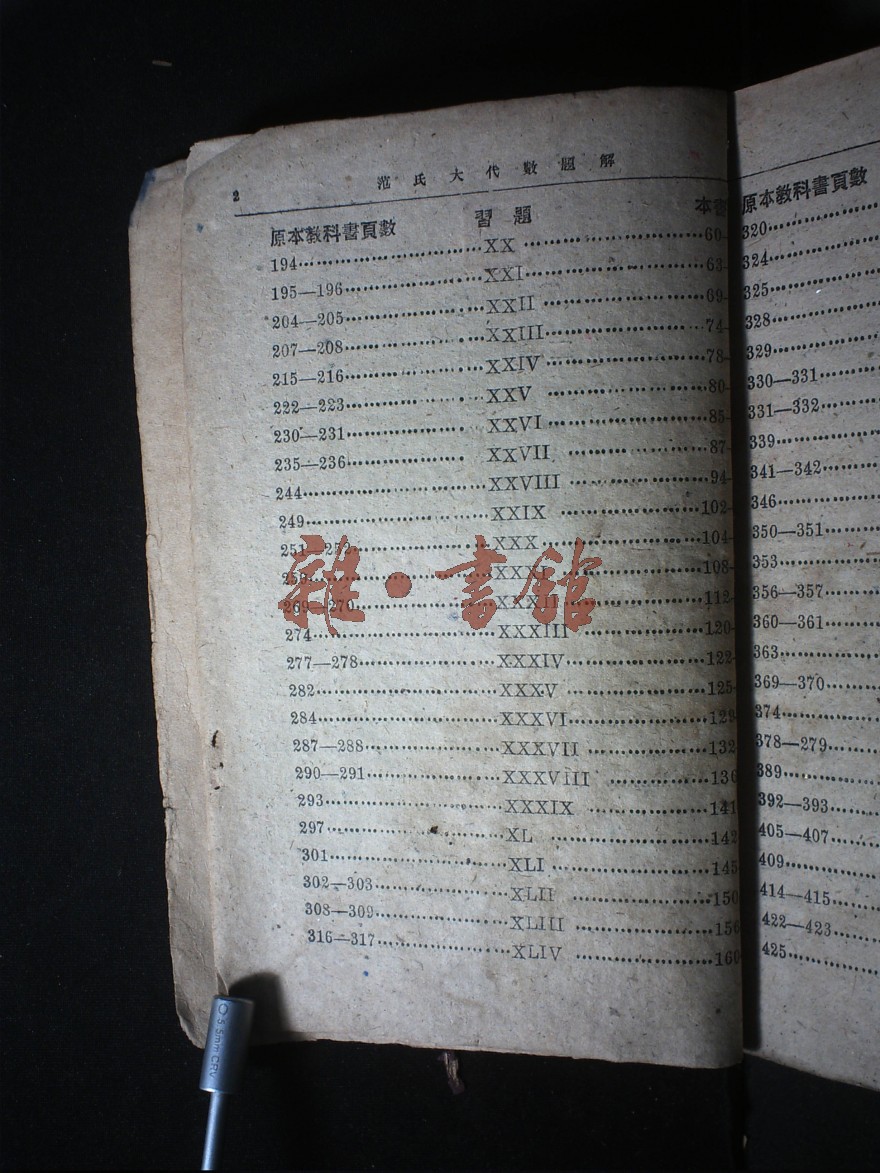 2 范氏大代數題解
原本教科書頁數 習題 本書
194 XX 60
195—196 XXI 63
204—205 XXII 69
207—208 XXIII 74
215—216 XXIV 78
222—223 XXV 80
230—231 XXVI 85
235—236 XXVII 87
244 XXVIII 94
249 XXIX 102
251—252 XXX 104
XXXI 108
269—270 XXXII 112
274 XXXIII 120
277—278 XXXIV 122
282 XXXV 125
284 XXXVI 129
287—288 XXXVII 132
290—291 XXXVIII 136
293 XXXIX 141
297 XL 142
301 XLI 145
302—303 XLII 150
308—309 XLIII 156
316—317 XLIV 160
雜·書館
0.5mm CRV
原本教科書頁數
320
324
325
328
329
330—331
331—332
339
341—342
346
350—351
353
356—357
360—361
363
369—370
374
378—279
389
392—393
405—407
409
414—415
422—423
425